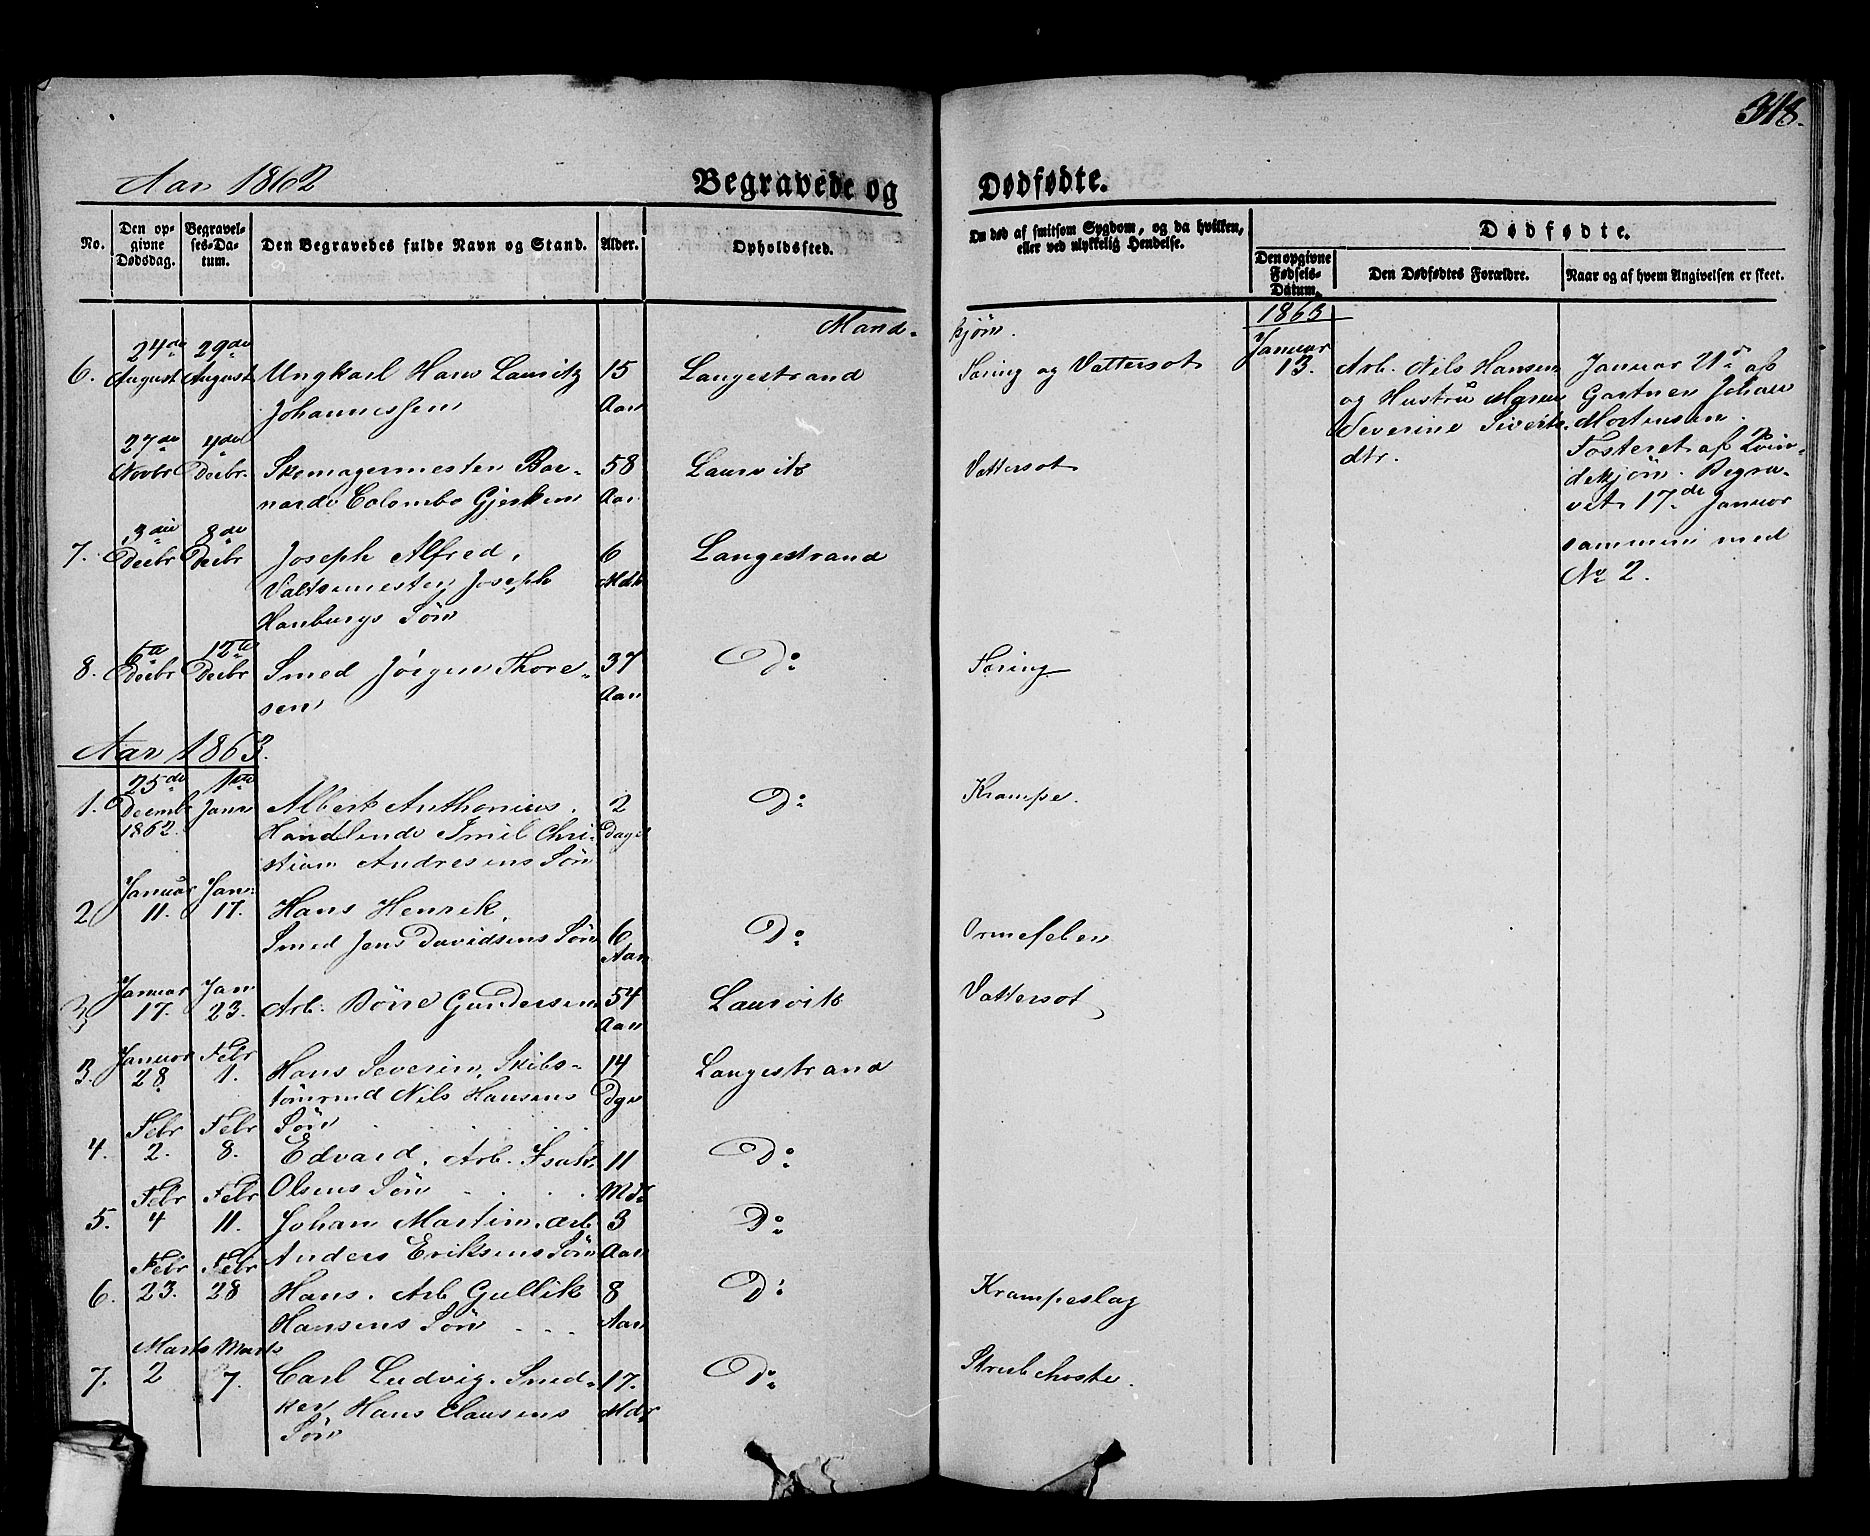 318.
Aar 1862
Begravede og Dødfødte.
No.
Den opgivne Dødsdag.
Begravelses-Datum.
Den Begravedes fulde Navn og Stand.
Alder.
Opholdssted.
Om død af smitsom Sygdom, og da hvilken, eller ved ulykkelig Hendelse.
Dødfødte.
Den opgivne Fødsels-Datum.
Den Dødfødtes Forældre.
Naar og af hvem Angivelsen er skeet.
Mandkjøn.
6. 24de August 29de August Ungkarl Hans Lauritz 15 Langestrand Tæring og Vattersot
Johannessen Aar
27de Novbr 4de Decbr Skomagermester Ber- 58 Laurvik Vattersot
nardo Colombo Gjerken Aar
7. 3die Decbr 8de Decbr Joseph Alfred, 6 Langestrand
Valtsemester Joseph Mdr
Hanburgs Søn
8. 6te Decbr 12te Decbr Smed Jørgen Thore- 37 Do Tæring
sen Aar
Aar 1863.
1. 25de Decemb 1862. 1ste Janr Albert Anthonius. 2 Do Krampe.
Handlende Emil Chri- Dage
stian Andresens Søn
2 Januar 11. Jan: 17. Hans Henrik,
Smed Jens Davidsens Søn 6 Do Ormefeber
Aar
Januar 17. Jan 23. Arb. Börre Gundersen 54 Laurvik Vattersot
Aar
3. Januar 28 Febr 1. Hans Severin, Skibs- 14 Langestrand
tømrmd Nils Hansens Dge
Søn
4. Febr 2. Febr 8. Edvard, Arb. Isak 11 Do
Olsens Søn Mdr
5. Febr 4 Febr 11. Johan Martin. Arb 3 Do
Anders Eriksens Søn Aar
6. Febr 23. Febr 28 Hans. Arb Gullik 8 Do Krampeslag
Hansens Søn Aar
7. Marts 2 Marts 7. Carl Ludvig. Smed- 17. Do Strubehoste.
ker Hans Clausens Mdr
Søn
1863
Januar
13.
Arb. Nils Hansen
og Hustru Maren
Severine Siverts
dtr.
Januar 21de af
Gartner Johan
Mortensen.
Fosteret af Kvin-
dekjøn. Begra-
vet 17de Januar
sammen med
No 2.